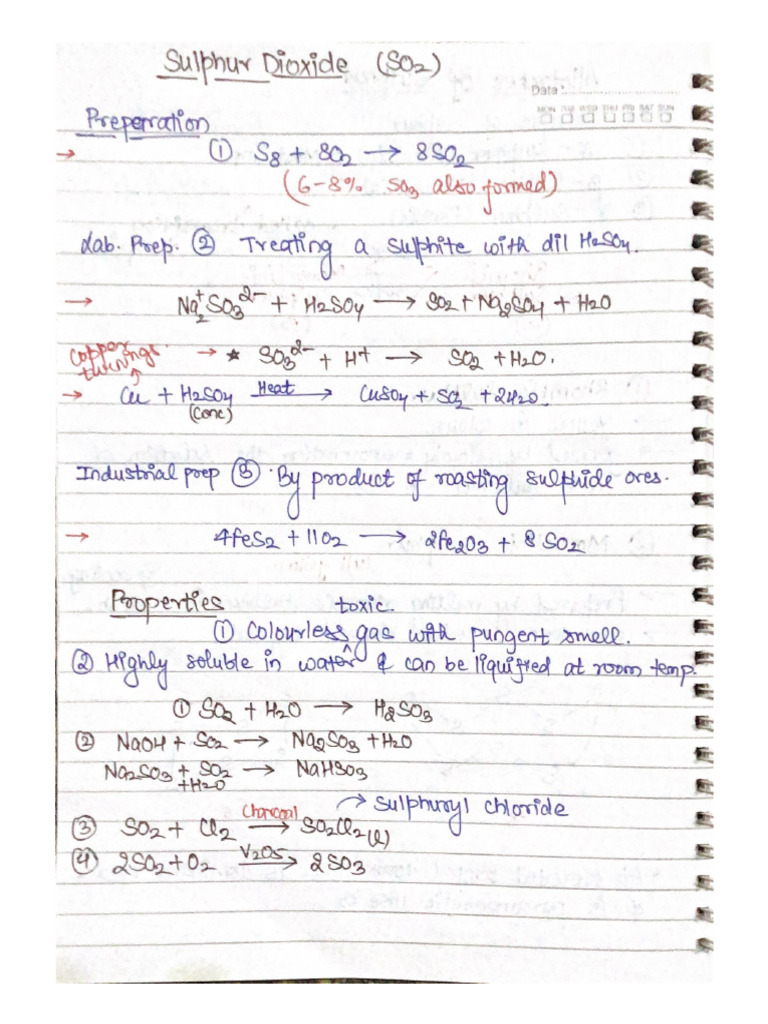 Sulphur Dioxide (SO2)
Date :
MON TUE WED THU FRI SAT SUN
Preperration
① S8 + 8O2 → 8SO2
(6-8% SO3 also formed)
Lab. Prep. ② Treating a sulphite with dil H2SO4.
→ Na2+SO3^2- + H2SO4 → SO2 + Na2SO4 + H2O
Copper turnings. → * SO3^2- + H+ → SO2 + H2O.
→ Cu + H2SO4 (Conc) Heat → CuSO4 + SO2 + 2H2O.
Industrial prep ③ · By product of roasting sulphide ores.
→ 4FeS2 + 11O2 → 2Fe2O3 + 8SO2
Properties toxic.
① Colourless gas with pungent smell.
② Highly soluble in water ^ & can be liquified at room temp.
① SO2 + H2O → H2SO3
② NaOH + SO2 → Na2SO3 + H2O
Na2SO3 + SO2 + H2O → NaHSO3
→ Sulphuryl chloride
③ SO2 + Cl2 Charcoal → SO2Cl2(l)
④ 2SO2 + O2 V2O5 → 2SO3